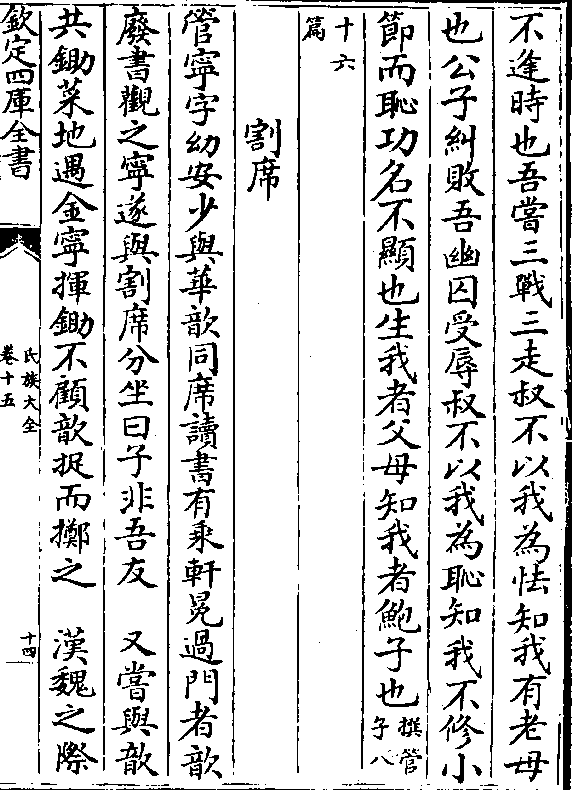 不逢時也吾嘗三戰三走叔不以我為怯知我有老母
也公子糾敗吾幽囚受辱叔不以我為恥知我不修小
節而恥功名不顯也生我者父母知我者鮑子也撰管子八
十六篇
割席
管寧字幼安少與華歆同席讀書有乘軒冕過門者歆
廢書觀之寧遂與割席分坐曰子非吾友　又嘗與歆
共鋤菜地遇金寧揮鋤不顧歆捉而擲之　漢魏之際
欽定四庫全書
氏族大全
卷十五
十四